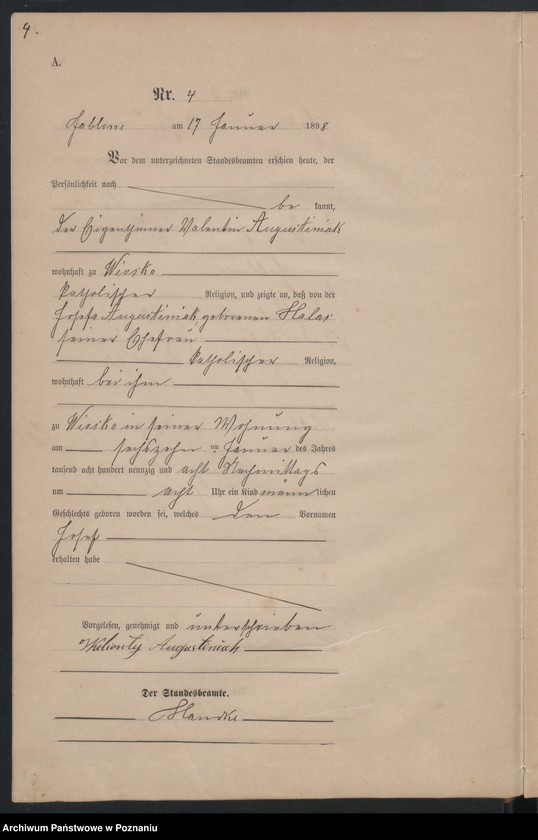 4.
A.
Nr. 4
Jablone am 17 Januar 1898
Vor dem unterzeichneten Standesbeamten erschien heute, der
Persönlichkeit nach
be kannt,
der Eigenthümer Valentin Augustiniak
wohnhaft zu Wiosko
katholischer Religion, und zeigte an, daß von der
Josefa Augustiniak geborenen Halas
seiner Ehefrau
katholischer Religion,
wohnhaft bei ihm
zu Wiosko in seiner Wohnung
am sechszehn ten Januar des Jahres
tausend acht hundert neunzig und acht Nachmittags
um acht Uhr ein Kind männlichen
Geschlechts geboren worden sei, welches den Vornamen
Josef
erhalten habe
Vorgelesen, genehmigt und unterschrieben
Augustiniak
Der Standesbeamte.
Archiwum Państwowe w Poznaniu